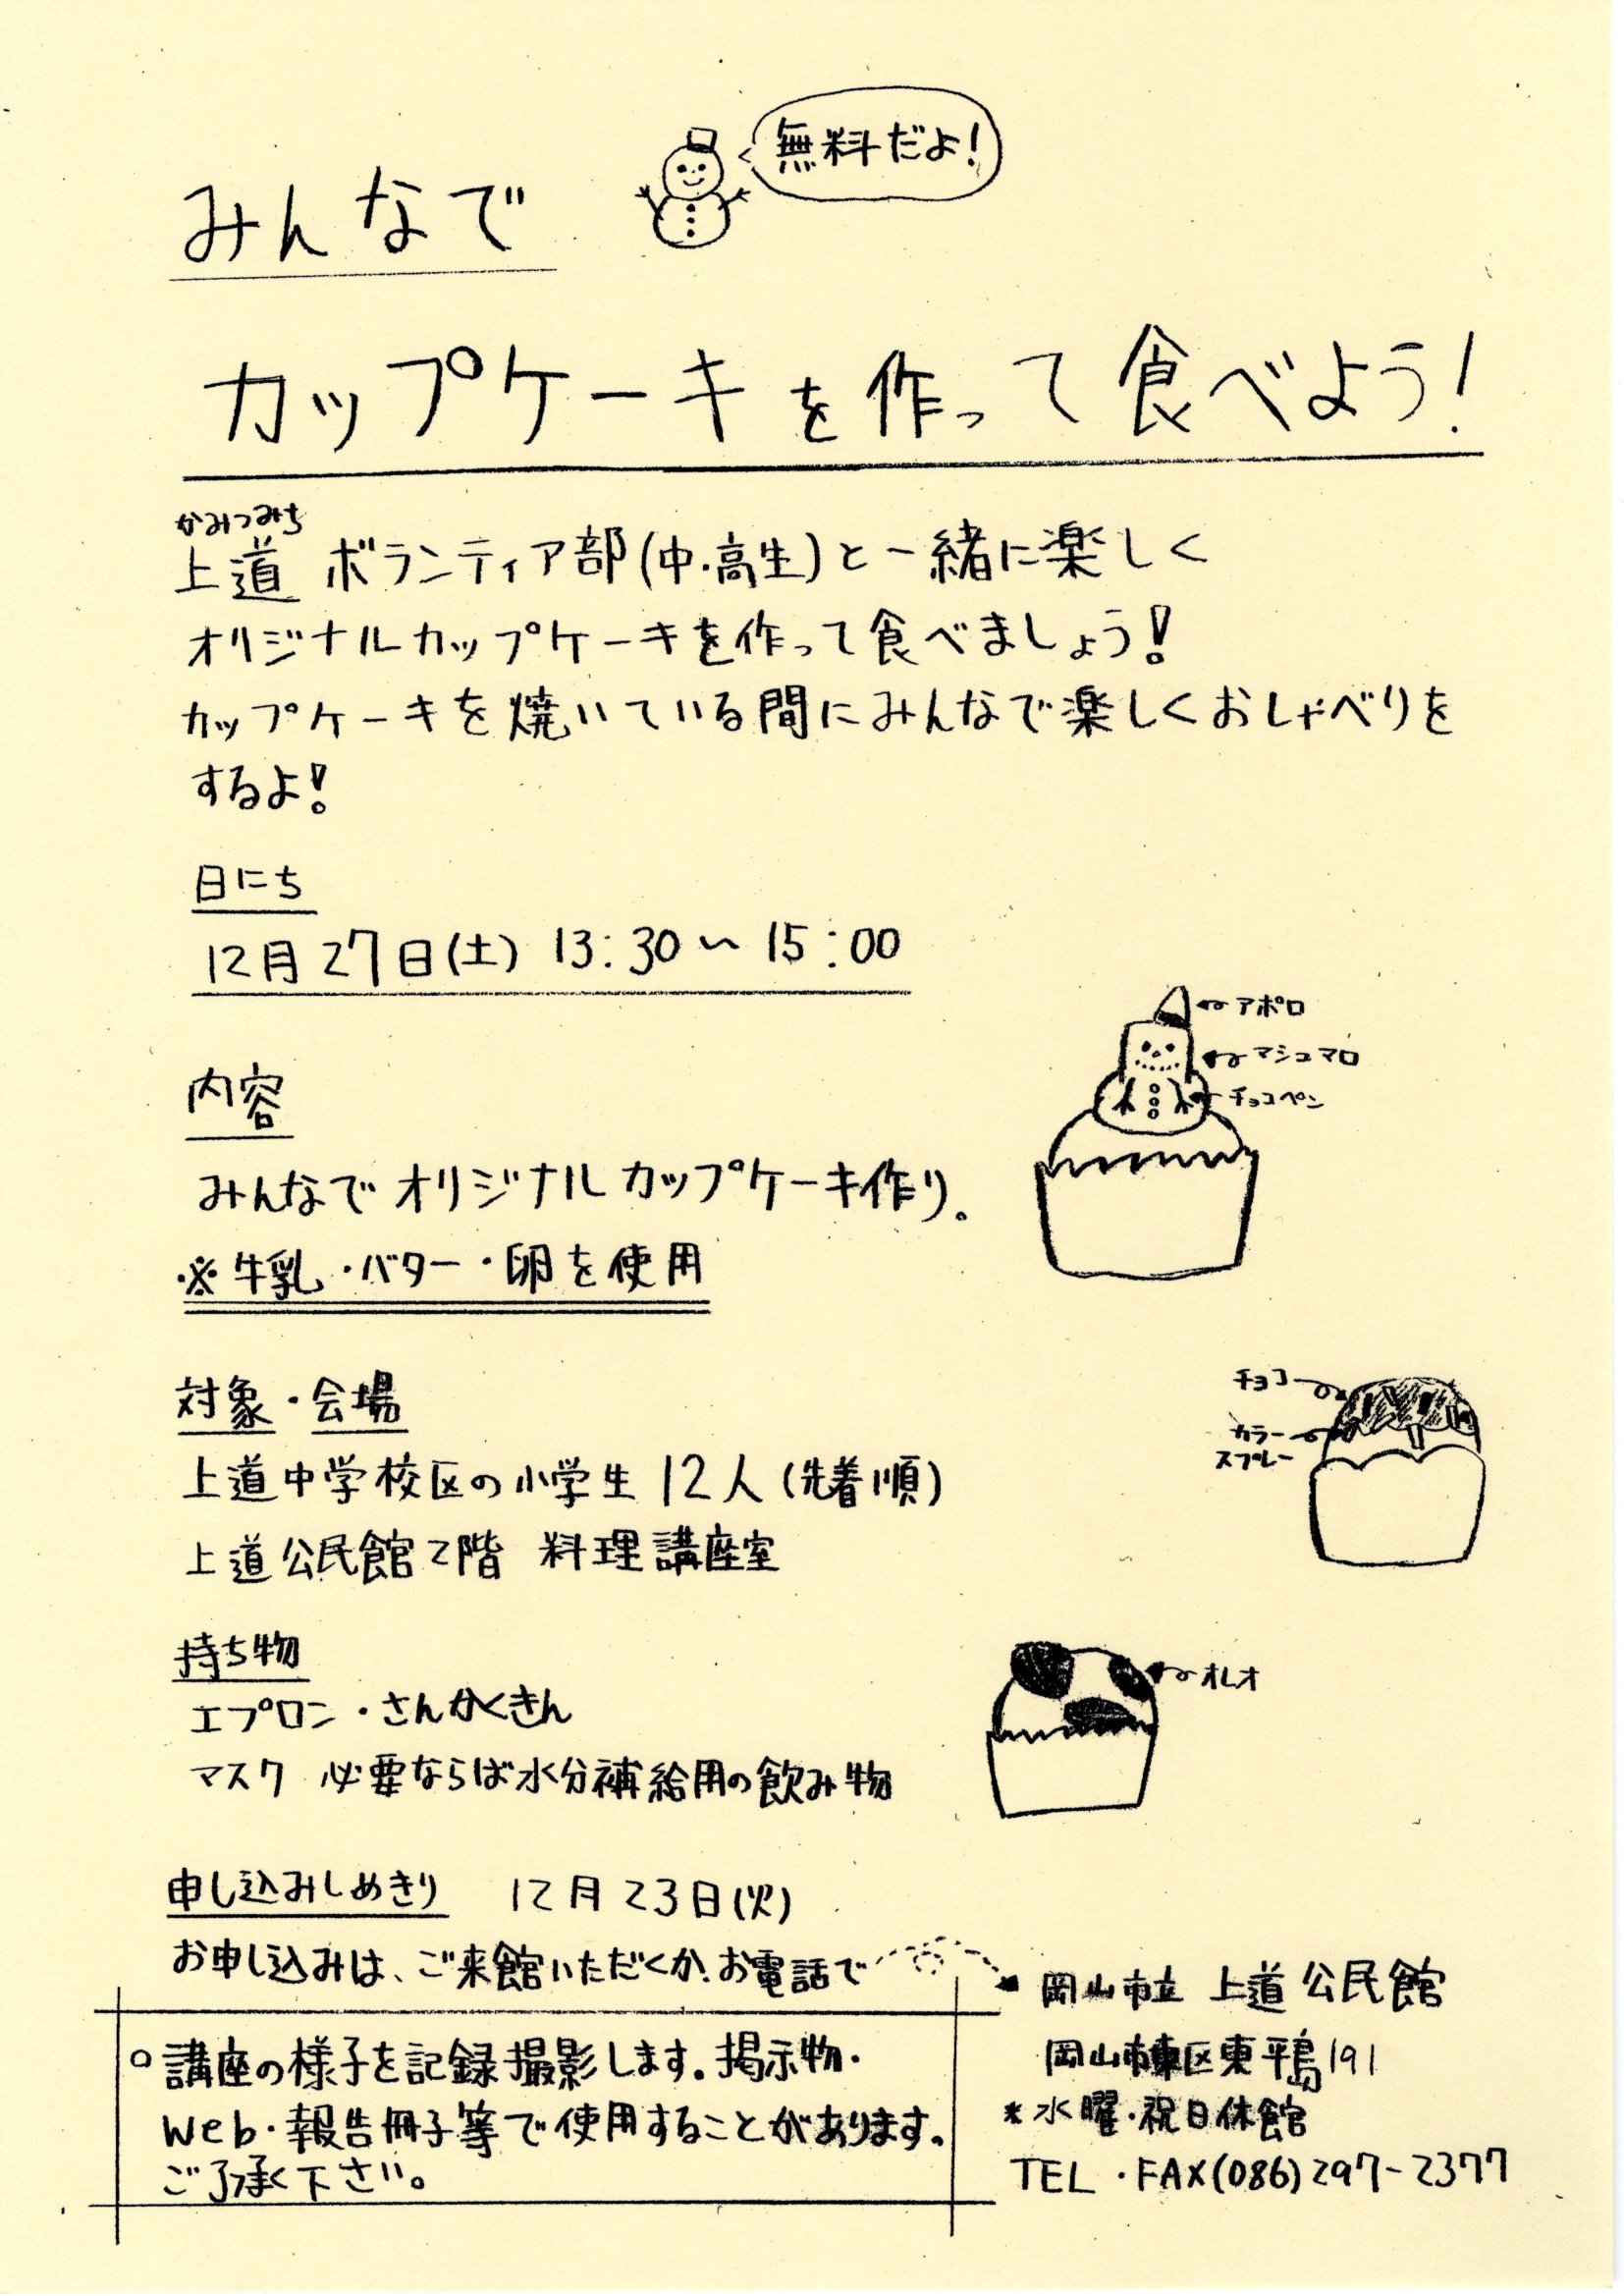 無料だよ!
みんなで
カップケーキを作って食べよう!
かみつみち
上道 ボランティア部(中・高生)と一緒に楽しく
オリジナルカップケーキを作って食べましょう!
カップケーキを焼いている間にみんなで楽しくおしゃべりを
するよ!
日にち
12月27日(土) 13:30〜15:00
アポロ
マシュマロ
チョコペン
内容
みんなでオリジナルカップケーキ作り。
※牛乳・バター・卵を使用
対象・会場
上道中学校区の小学生12人(先着順)
上道公民館2階 料理講座室
チョコ
カラー
スプレー
持ち物
エプロン・さんかくきん
マスク 必要ならば水分補給用の飲み物
オレオ
申し込みしめきり 12月23日(火)
お申し込みは、ご来館いただくか、お電話で
岡山市立 上道公民館
岡山市東区東平島191
*水曜・祝日休館
TEL・FAX(086)297-2377
○講座の様子を記録撮影します。掲示物・
Web・報告冊子等で使用することがあります。
ご了承下さい。